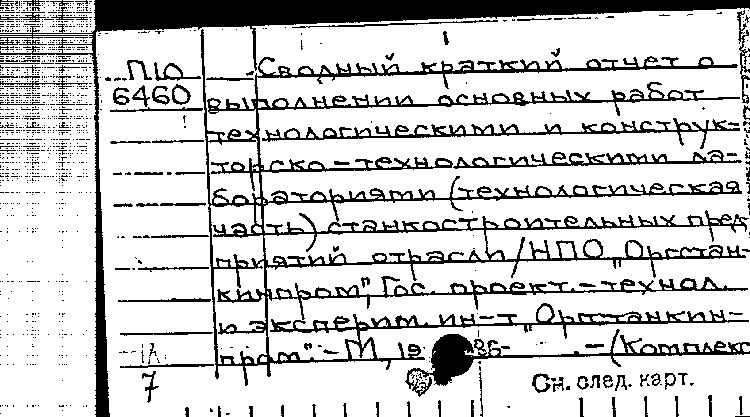 П10 Сводный краткий отчет о
6460 выполнении основных работ
технологическими и конструк-
торско-технологическими ла-
бораториями (технологическая
часть) станкостроительных пред
приятий отрасли/НПО „Оргстан-
кинпром", Гос. проект.-технол.
и эксперим. ин-т „Оргстанкин-
пром". - М, 19 86- .-(Комплекс
7
См. след. карт.